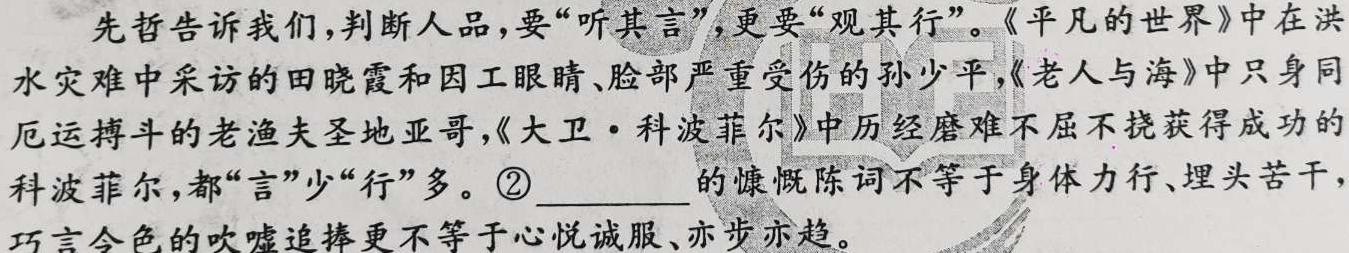 先哲告诉我们,判断人品,要“听其言”,更要“观其行”。《平凡的世界》中在洪
水灾难中采访的田晓霞和因工眼睛、脸部严重受伤的孙少平,《老人与海》中只身同
厄运搏斗的老渔夫圣地亚哥,《大卫·科波菲尔》中历经磨难不屈不挠获得成功的
科波菲尔,都“言”少“行”多。②________的慷慨陈词不等于身体力行、埋头苦干,
巧言令色的吹嘘追捧更不等于心悦诚服、亦步亦趋。